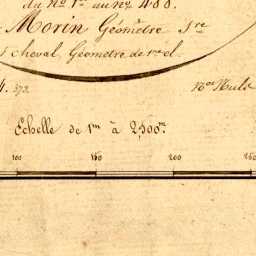 du No. 1er au no. 488.
Morin Géomètre Sre
cheval, Géomètre de 1re cl.
4. 572.
Nota Nulle
Echelle de 1m à 2,500m.
100 150 200 250